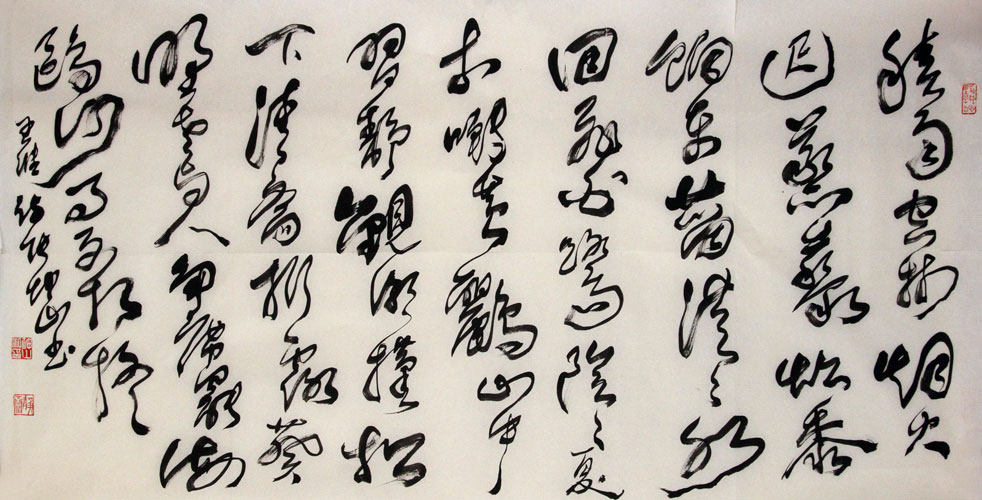 積雨空林烟火
遲蒸藜炊黍
餉東菑漠々水
田飛白鷺陰々夏
木囀黃鸝山中
習靜觀朝槿松
下清齋折露葵
野老與人爭席罷海
鷗何事更相疑
王維詩山书